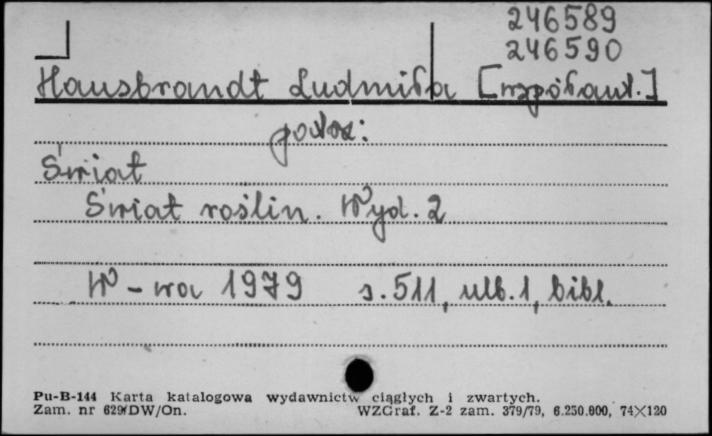 246589
246590
Hausbrandt Ludmiła [współaut.]
patrz:
Świat
Świat roślin. Wyd. 2
W-wa 1979 s. 511, nlb. 1, bibl.
Pu-B-144 Karta katalogowa wydawnictw ciągłych i zwartych.
Zam. nr 629/DW/On. WZGraf. Z-2 zam. 379/79, 6.250.000, 74×120